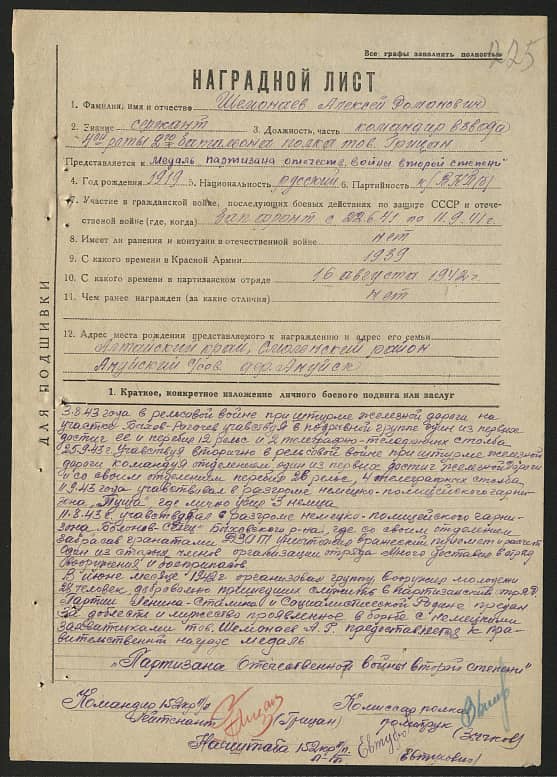 225
Все графы заполнять полностью
НАГРАДНОЙ ЛИСТ
1. Фамилия, имя и отчество Шемонаев Алексей Романович
2. Звание сержант 3. Должность, часть командир взвода
4ой роты 2го батальона полка тов. Грицан
Представляется к медаль партизана отечеств. войны второй степени"
4. Год рождения 1919 5. Национальность русский 6. Партийность к/ВКП(б)
7. Участие в гражданской войне, последующих боевых действиях по защите СССР и отече-
ственной войне (где, когда) Зап фронт с 22.6.41 по 11.9.41 г.
8. Имеет ли ранения и контузии в отечественной войне нет
9. С какого времени в Красной Армии 1939
10. С какого времени в партизанском отряде 16 августа 1942 г
11. Чем ранее награжден (за какие отличия) нет
12. Адрес места рождения представляемого к награждению и адрес его семьи
Алтайский край, Смоленский район
Ануйский с/сов. дер. Ануйск
ДЛЯ ПОДШИВКИ
1. Краткое, конкретное изложение личного боевого подвига или заслуг
3.8.43 года в рельсовой войне при штурме железной дороги на
участке Рогачев участвуя в подрывной группе один из первых
достиг ее и перебил 12 рельс и 2 телеграфно-телефонных столба
25.9.43 г. Участвуя вторично в рельсовой войне при штурме железной
дороги командуя отделением один из первых достиг железной дороги
и со своим отделением перебил рельс, 4 телеграфных столба
11.9.43 года участвовал в разгроме немецко-полицейского гарни-
зона где лично убил 3 немца
11.8.43 г. участвовал в разгроме немецко-полицейского гарни-
зона р-на, где со своим отделением
забросав гранатами ДЗОТ уничтожив вражеский пулемет и расчет
Один из старых членов организации отряда. Много доставил в отряд
вооружения и боеприпасов
В июне месяце организовал группу, вооружив молодежи
человек, добровольно пришедших служить в партизанский отряд
Партии Ленина-Сталина и Социалистической Родине предан
За доблесть и мужество проявленное в борьбе с немецкими
захватчиками тов. Шемонаев А.Р. представляется к пра-
вительственной награде медаль
"Партизана отечественной войны второй степени"
Командир 152 кр п/п Комиссар полка
лейтенант (Грицан) политрук (Зычков)
Нач штаба 152 кр п/п